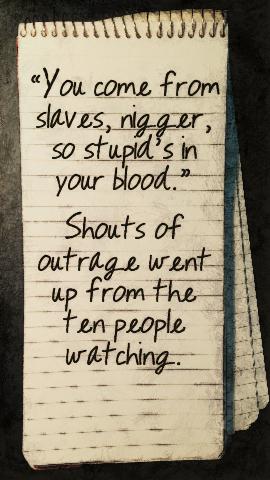 "You come from
slaves, nigger,
so stupid's in
your blood."
Shouts of
outrage went
up from the
ten people
watching.